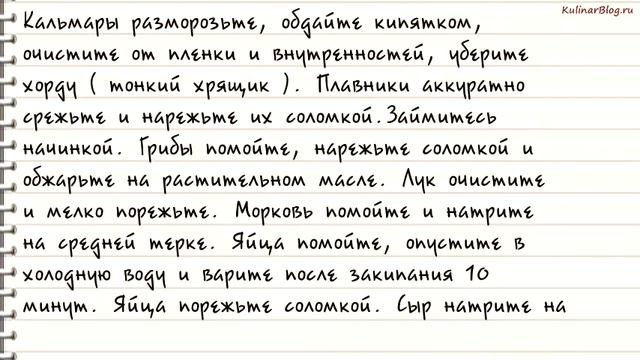 KulinarBlog.ru
Кальмары разморозьте, обдайте кипятком,
очистите от пленки и внутренностей, уберите
хорду ( тонкий хрящик ). Плавники аккуратно
срежьте и нарежьте их соломкой. Займитесь
начинкой. Грибы помойте, нарежьте соломкой и
обжарьте на растительном масле. Лук очистите
и мелко порежьте. Морковь помойте и натрите
на средней терке. Яйца помойте, опустите в
холодную воду и варите после закипания 10
минут. Яйца порежьте соломкой. Сыр натрите на